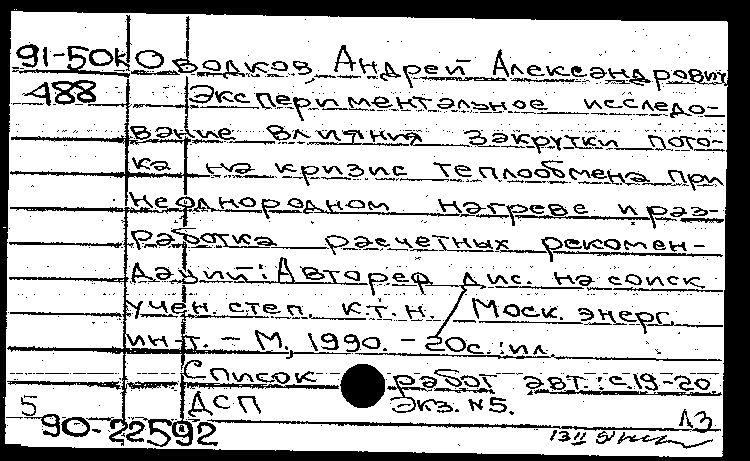 91-50к Ободков, Андрей Александрович
488 Экспериментальное исследо-
вание влияния закрутки пото-
ка на кризис теплообмена при
неоднородном нагреве и раз-
работка расчетных рекомен-
даций: Автореф дис. на соиск
учен. степ. к.т.н. / Моск. энерг.
ин-т. - М., 1990. - 20с.: ил.
Список работ авт.: с. 19-20.
5 ДСП Экз. №5. ЛЗ
90-22592